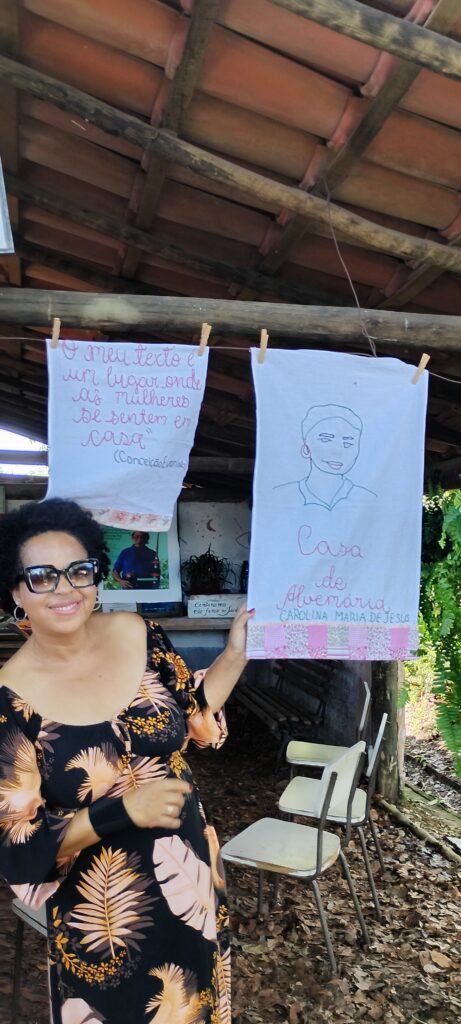 O meu texto é
um lugar onde
as mulheres
se sentem em
casa"
(Conceição Evaristo)
Casa
de
Alvemária
CAROLINA MARIA DE JESUS